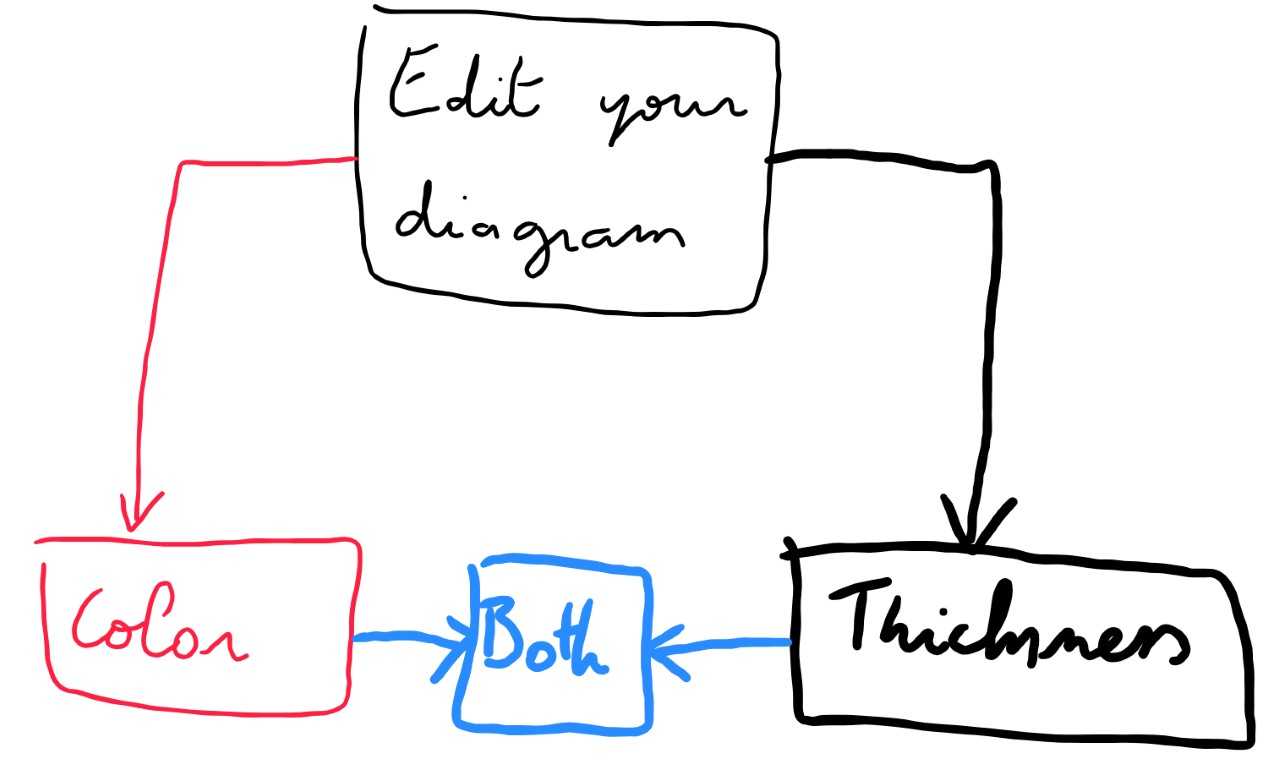 Edit your
diagram
Color
Both
Thickness